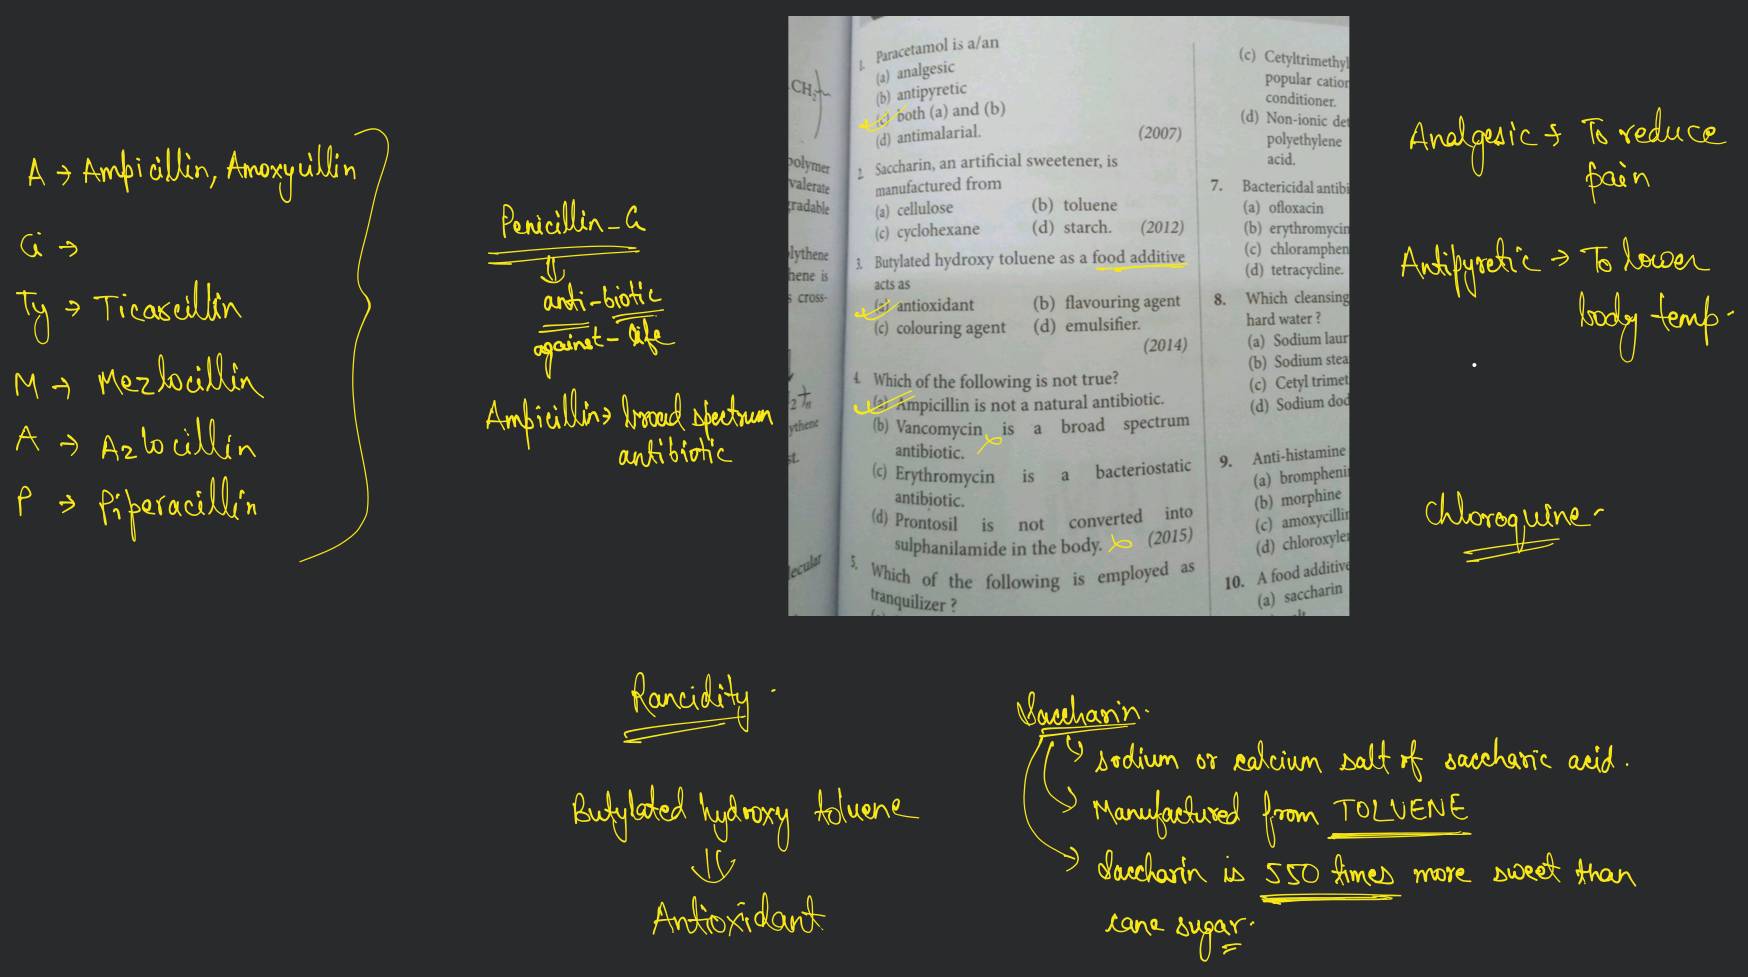 A → Ampicillin, Amoxycillin
Ci →
Ty → Ticarcillin
M → Mezlocillin
A → Azlocillin
P → Piperacillin
Penicillin-G
anti-biotic
against-life
Ampicillin → broad spectrum
antibiotic
CH2
polymer
valerate
gradable
lythene
hene is
s cross-
ythene
st.
lecular
1. Paracetamol is a/an
(a) analgesic
(b) antipyretic
(c) both (a) and (b)
(d) antimalarial. (2007)
2. Saccharin, an artificial sweetener, is
manufactured from
(a) cellulose (b) toluene
(c) cyclohexane (d) starch. (2012)
3. Butylated hydroxy toluene as a food additive
acts as
(a) antioxidant (b) flavouring agent
(c) colouring agent (d) emulsifier.
(2014)
4. Which of the following is not true?
(a) Ampicillin is not a natural antibiotic.
(b) Vancomycin is a broad spectrum
antibiotic.
(c) Erythromycin is a bacteriostatic
antibiotic.
(d) Prontosil is not converted into
sulphanilamide in the body. (2015)
5. Which of the following is employed as
tranquilizer ?
(c) Cetyltrimethyl
popular cation
conditioner.
(d) Non-ionic det
polyethylene
acid.
7. Bactericidal antibi
(a) ofloxacin
(b) erythromycin
(c) chloramphen
(d) tetracycline.
8. Which cleansing
hard water ?
(a) Sodium laur
(b) Sodium stea
(c) Cetyl trimet
(d) Sodium dod
9. Anti-histamine
(a) bromphenir
(b) morphine
(c) amoxycillin
(d) chloroxyle
10. A food additive
(a) saccharin
Analgesic → To reduce
pain
Antipyretic → To lower
body temp.
Chloroquine
Rancidity
Butylated hydroxy toluene
Antioxidant
Saccharin.
sodium or calcium salt of saccharic acid.
Manufactured from TOLUENE
Saccharin is 550 times more sweet than
cane sugar.